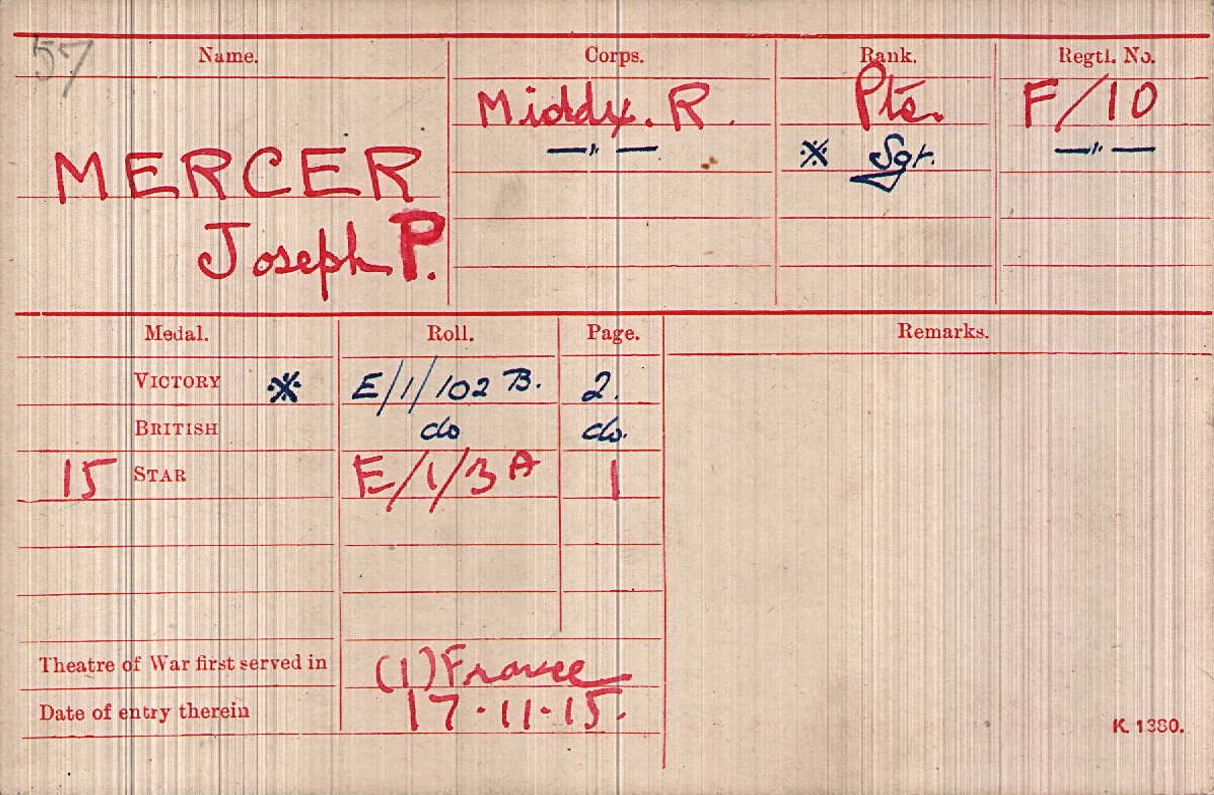 57
Name. Corps. Rank. Regtl. No.
Middx. R. Pte. F/10
—"— ※ Sgt. —"—
MERCER
Joseph P.
Medal. Roll. Page. Remarks.
VICTORY ※ E/1/102 B. 2.
BRITISH do do.
15 STAR E/1/3 A 1
Theatre of War first served in (1) France
Date of entry therein 17.11.15.
K. 1380.